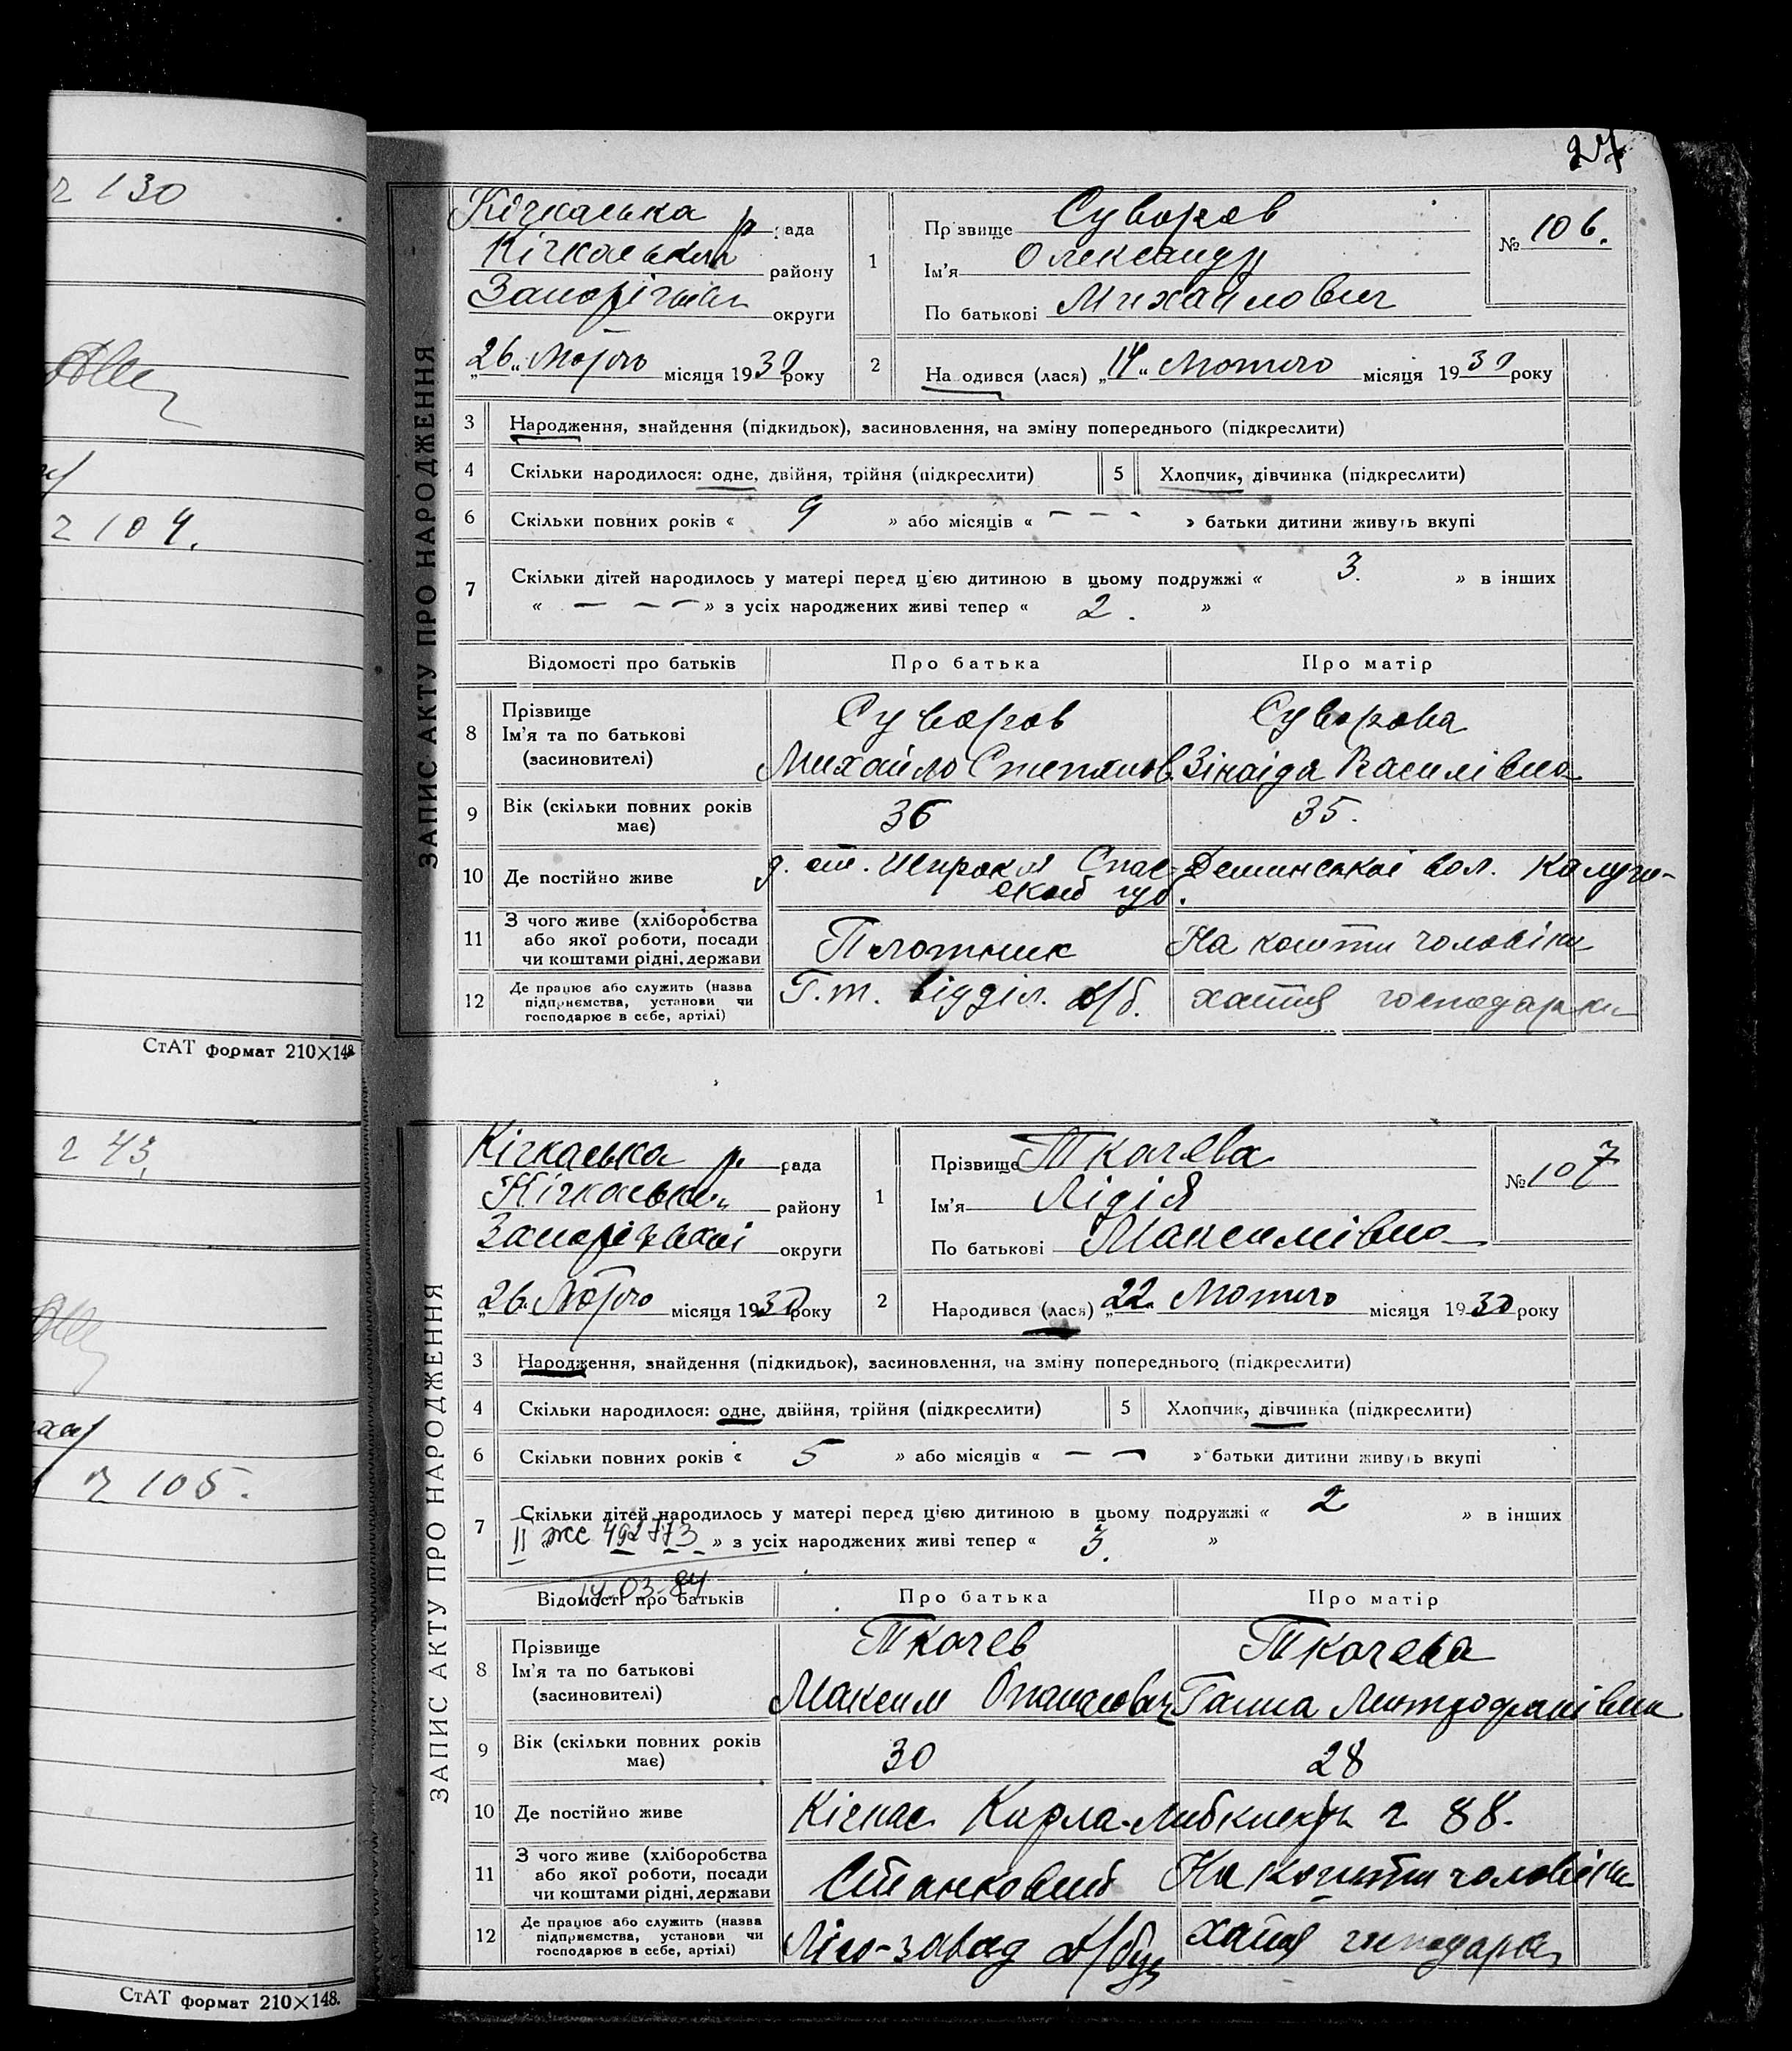 27
г 130
г 104.
СтАТ формат 210×148
г 43.
г 105.
СтАТ формат 210×148.
ЗАПИС АКТУ ПРО НАРОДЖЕННЯ
Кічкаська р рада
Кічкаський району
Запорізької округи
„26„ Лютого місяця 1930 року
1
Прізвище Суворов
Ім'я Олександр
По батькові Михайлович
№ 106.
2
На одився (лася) „14„ Лютого місяця 1930 року
3 Народження, знайдення (підкидьок), засиновлення, на зміну попереднього (підкреслити)
4 Скільки народилося: одне, двійня, трійня (підкреслити) 5 Хлопчик, дівчинка (підкреслити)
6 Скільки повних років « 9 » або місяців « - - - » батьки дитини живуть вкупі
7 Скільки дітей народилось у матері перед цією дитиною в цьому подружжі « 3. » в інших
« — — — » з усіх народжених живі тепер « 2. »
Відомості про батьків Про батька Про матір
8 Прізвище
Ім'я та по батькові
(засиновителі)
Суворов
Михайло Степанов.
Суворова
Зінаіда Василівна
9 Вік (скільки повних років
має)
36 35.
10 Де постійно живе
11 З чого живе (хліборобства
або якої роботи, посади
чи коштами рідні, держави
Плотник На кошти чоловіка
12 Де працює або служить (назва
підприємства, установи чи
господарює в себе, артілі)
Г.т. відділ. Д/б. хатня господарка
ЗАПИС АКТУ ПРО НАРОДЖЕННЯ
Кічкаська р. рада
Кічкаськ. району
Запорізької округи
„26. Лютого місяця 1930 року
1
Прізвище Ткачева
Ім'я Лідія
По батькові Максимівна
№ 107
2
Народився (лася) „22. Лютого місяця 1930 року
3 Народження, знайдення (підкидьок), засиновлення, на зміну попереднього (підкреслити)
4 Скільки народилося: одне, двійня, трійня (підкреслити) 5 Хлопчик, дівчинка (підкреслити)
6 Скільки повних років « 5 » або місяців « — — » батьки дитини живуть вкупі
7 Скільки дітей народилось у матері перед цією дитиною в цьому подружжі « 2 » в інших
II жс 492773 » з усіх народжених живі тепер « 3. »
14 03-84
Відомості про батьків Про батька Про матір
8 Прізвище
Ім'я та по батькові
(засиновителі)
Ткачев
Максим Опанасович
Ткачева
Ганна Митрофанівна
9 Вік (скільки повних років
має)
30 28
10 Де постійно живе
Кічкас. Карла-Либкнехта 2 88.
11 З чого живе (хліборобства
або якої роботи, посади
чи коштами рідні, держави
Станковий На кошти чоловіка
12 Де працює або служить (назва
підприємства, установи чи
господарює в себе, артілі)
Лісо-завод Д/буд хатня господарка